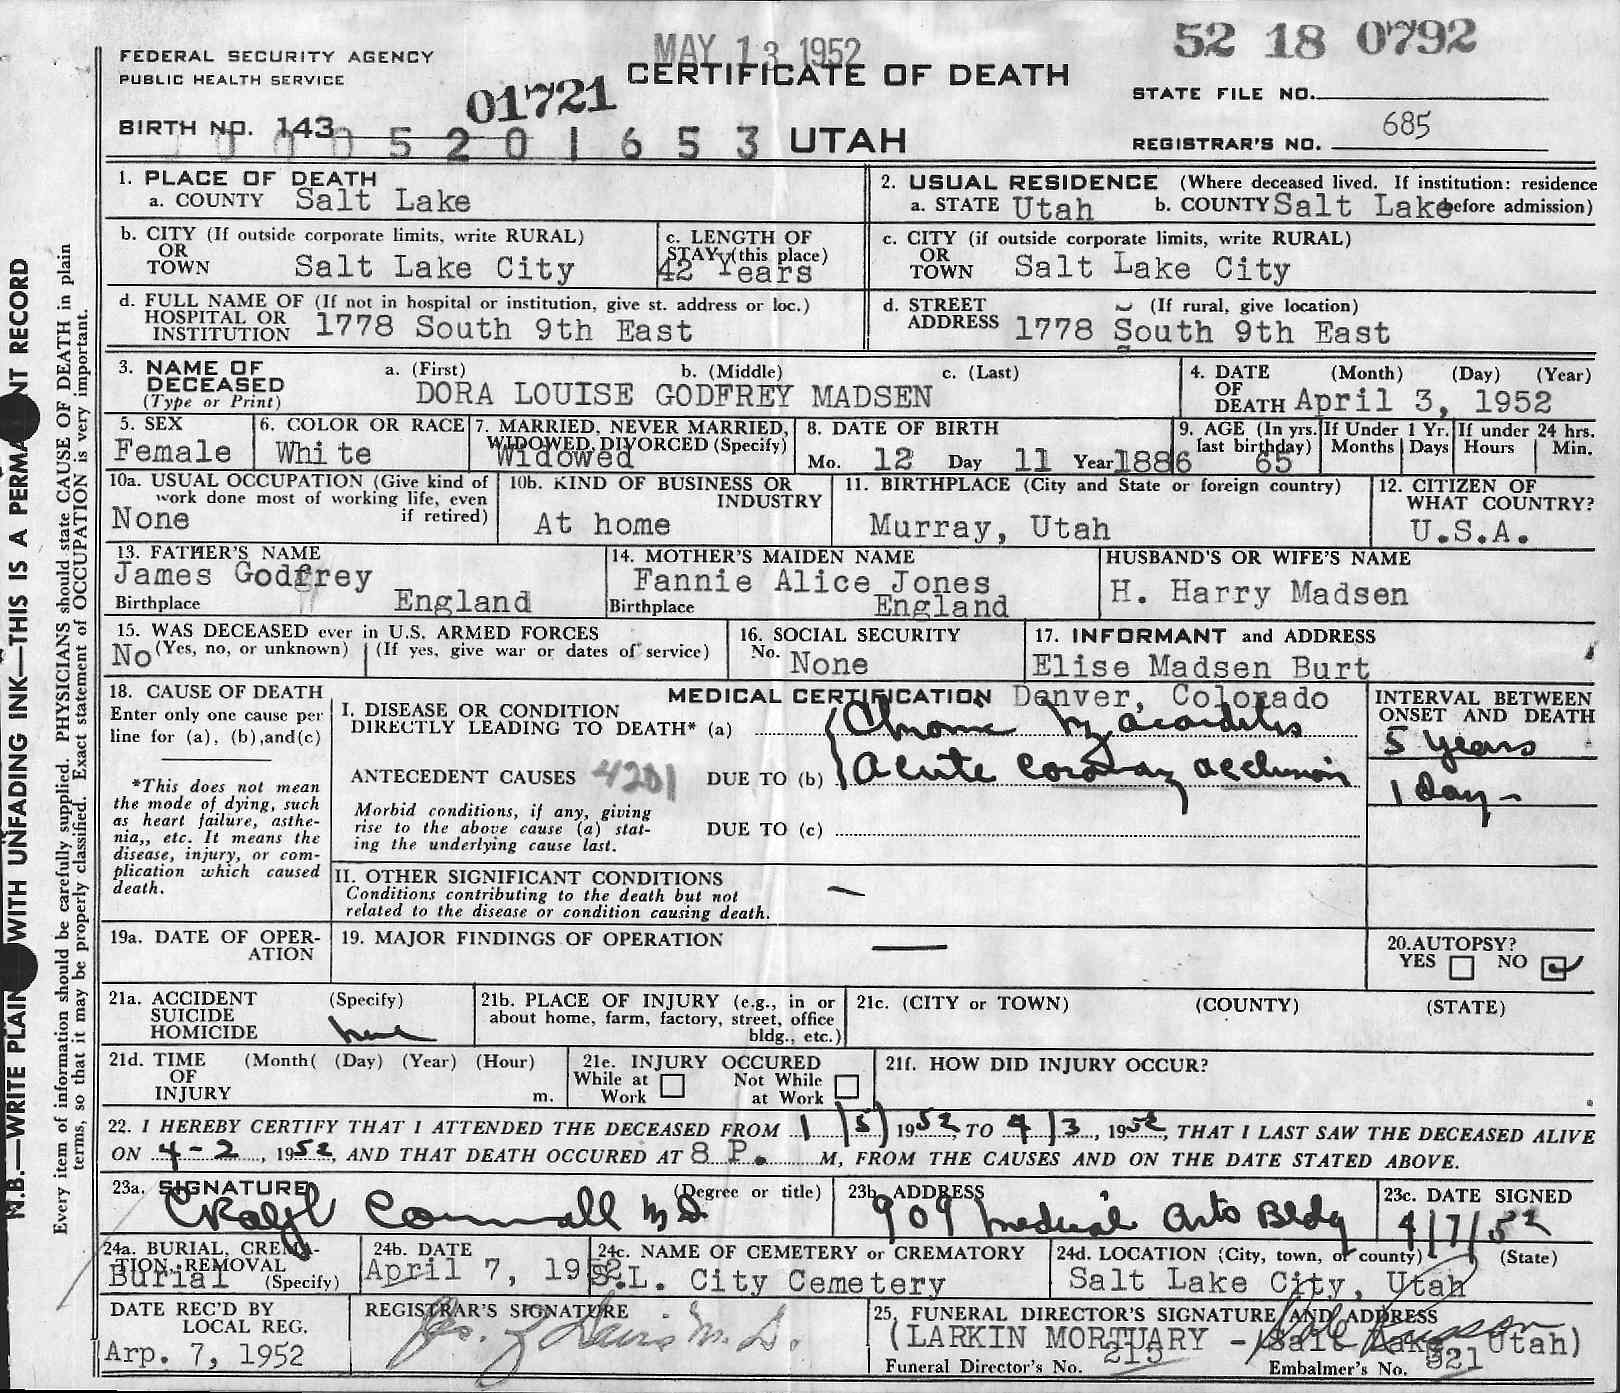 MAY 13 1952
52 18 0792
FEDERAL SECURITY AGENCY
PUBLIC HEALTH SERVICE
CERTIFICATE OF DEATH
STATE FILE NO.
01721
BIRTH NO. 143
5 2 0 1 6 5 3 UTAH
REGISTRAR'S NO. 685
1. PLACE OF DEATH
a. COUNTY Salt Lake
2. USUAL RESIDENCE (Where deceased lived. If institution: residence before admission)
a. STATE Utah b. COUNTY Salt Lake
b. CITY (If outside corporate limits, write RURAL)
OR
TOWN Salt Lake City
c. LENGTH OF
STAY (this place)
42 Years
c. CITY (if outside corporate limits, write RURAL)
OR
TOWN Salt Lake City
d. FULL NAME OF (If not in hospital or institution, give st. address or loc.)
HOSPITAL OR
INSTITUTION 1778 South 9th East
d. STREET (If rural, give location)
ADDRESS 1778 South 9th East
3. NAME OF
DECEASED
(Type or Print)
a. (First) b. (Middle) c. (Last)
DORA LOUISE GODFREY MADSEN
4. DATE (Month) (Day) (Year)
OF
DEATH April 3, 1952
5. SEX
Female
6. COLOR OR RACE
White
7. MARRIED, NEVER MARRIED,
WIDOWED, DIVORCED (Specify)
Widowed
8. DATE OF BIRTH
Mo. 12 Day 11 Year 1886
9. AGE (In yrs.
last birthday)
65
If Under 1 Yr.
Months Days
If under 24 hrs.
Hours Min.
10a. USUAL OCCUPATION (Give kind of
work done most of working life, even
if retired)
None
10b. KIND OF BUSINESS OR
INDUSTRY
At home
11. BIRTHPLACE (City and State or foreign country)
Murray, Utah
12. CITIZEN OF
WHAT COUNTRY?
U.S.A.
13. FATHER'S NAME
James Godfrey
Birthplace England
14. MOTHER'S MAIDEN NAME
Fannie Alice Jones
Birthplace England
HUSBAND'S OR WIFE'S NAME
H. Harry Madsen
15. WAS DECEASED ever in U.S. ARMED FORCES
No (Yes, no, or unknown) (If yes, give war or dates of service)
16. SOCIAL SECURITY
No. None
17. INFORMANT and ADDRESS
Elise Madsen Burt
Denver, Colorado
18. CAUSE OF DEATH
Enter only one cause per
line for (a), (b),and(c)
*This does not mean
the mode of dying, such
as heart failure, asthe-
nia,, etc. It means the
disease, injury, or com-
plication which caused
death.
MEDICAL CERTIFICATION
I. DISEASE OR CONDITION
DIRECTLY LEADING TO DEATH* (a) Chronic Myocarditis
ANTECEDENT CAUSES 4201 DUE TO (b) Acute coronary occlusion
Morbid conditions, if any, giving
rise to the above cause (a) stat-
ing the underlying cause last.
DUE TO (c)
INTERVAL BETWEEN
ONSET AND DEATH
5 years
1 Day
II. OTHER SIGNIFICANT CONDITIONS
Conditions contributing to the death but not
related to the disease or condition causing death.
19a. DATE OF OPER-
ATION
19. MAJOR FINDINGS OF OPERATION
20.AUTOPSY?
YES NO
21a. ACCIDENT (Specify)
SUICIDE
HOMICIDE
21b. PLACE OF INJURY (e.g., in or
about home, farm, factory, street, office
bldg., etc.)
21c. (CITY or TOWN) (COUNTY) (STATE)
21d. TIME (Month( (Day) (Year) (Hour)
OF
INJURY m.
21e. INJURY OCCURED
While at Work Not While at Work
21f. HOW DID INJURY OCCUR?
22. I HEREBY CERTIFY THAT I ATTENDED THE DECEASED FROM 1/5/ 1952, TO 4/3, 1952, THAT I LAST SAW THE DECEASED ALIVE
ON 4-2, 1952, AND THAT DEATH OCCURED AT 8 P. M, FROM THE CAUSES AND ON THE DATE STATED ABOVE.
23a. SIGNATURE (Degree or title)
23b. ADDRESS
909 Medical Arts Bldg
23c. DATE SIGNED
4/7/52
24a. BURIAL, CREMA-
TION, REMOVAL
Burial (Specify)
24b. DATE
April 7, 1952
24c. NAME OF CEMETERY or CREMATORY
S.L. City Cemetery
24d. LOCATION (City, town, or county) (State)
Salt Lake City, Utah
DATE REC'D BY
LOCAL REG.
Arp. 7, 1952
REGISTRAR'S SIGNATURE
25. FUNERAL DIRECTOR'S SIGNATURE AND ADDRESS
(LARKIN MORTUARY - Salt Lake, Utah)
Funeral Director's No. 215 Embalmer's No. 321
N.B.—WRITE PLAIN WITH UNFADING INK—THIS IS A PERMA NT RECORD
Every item of information should be carefully supplied. PHYSICIANS should state CAUSE OF DEATH in plain
terms, so that it may be properly classified. Exact statement of OCCUPATION is very important.